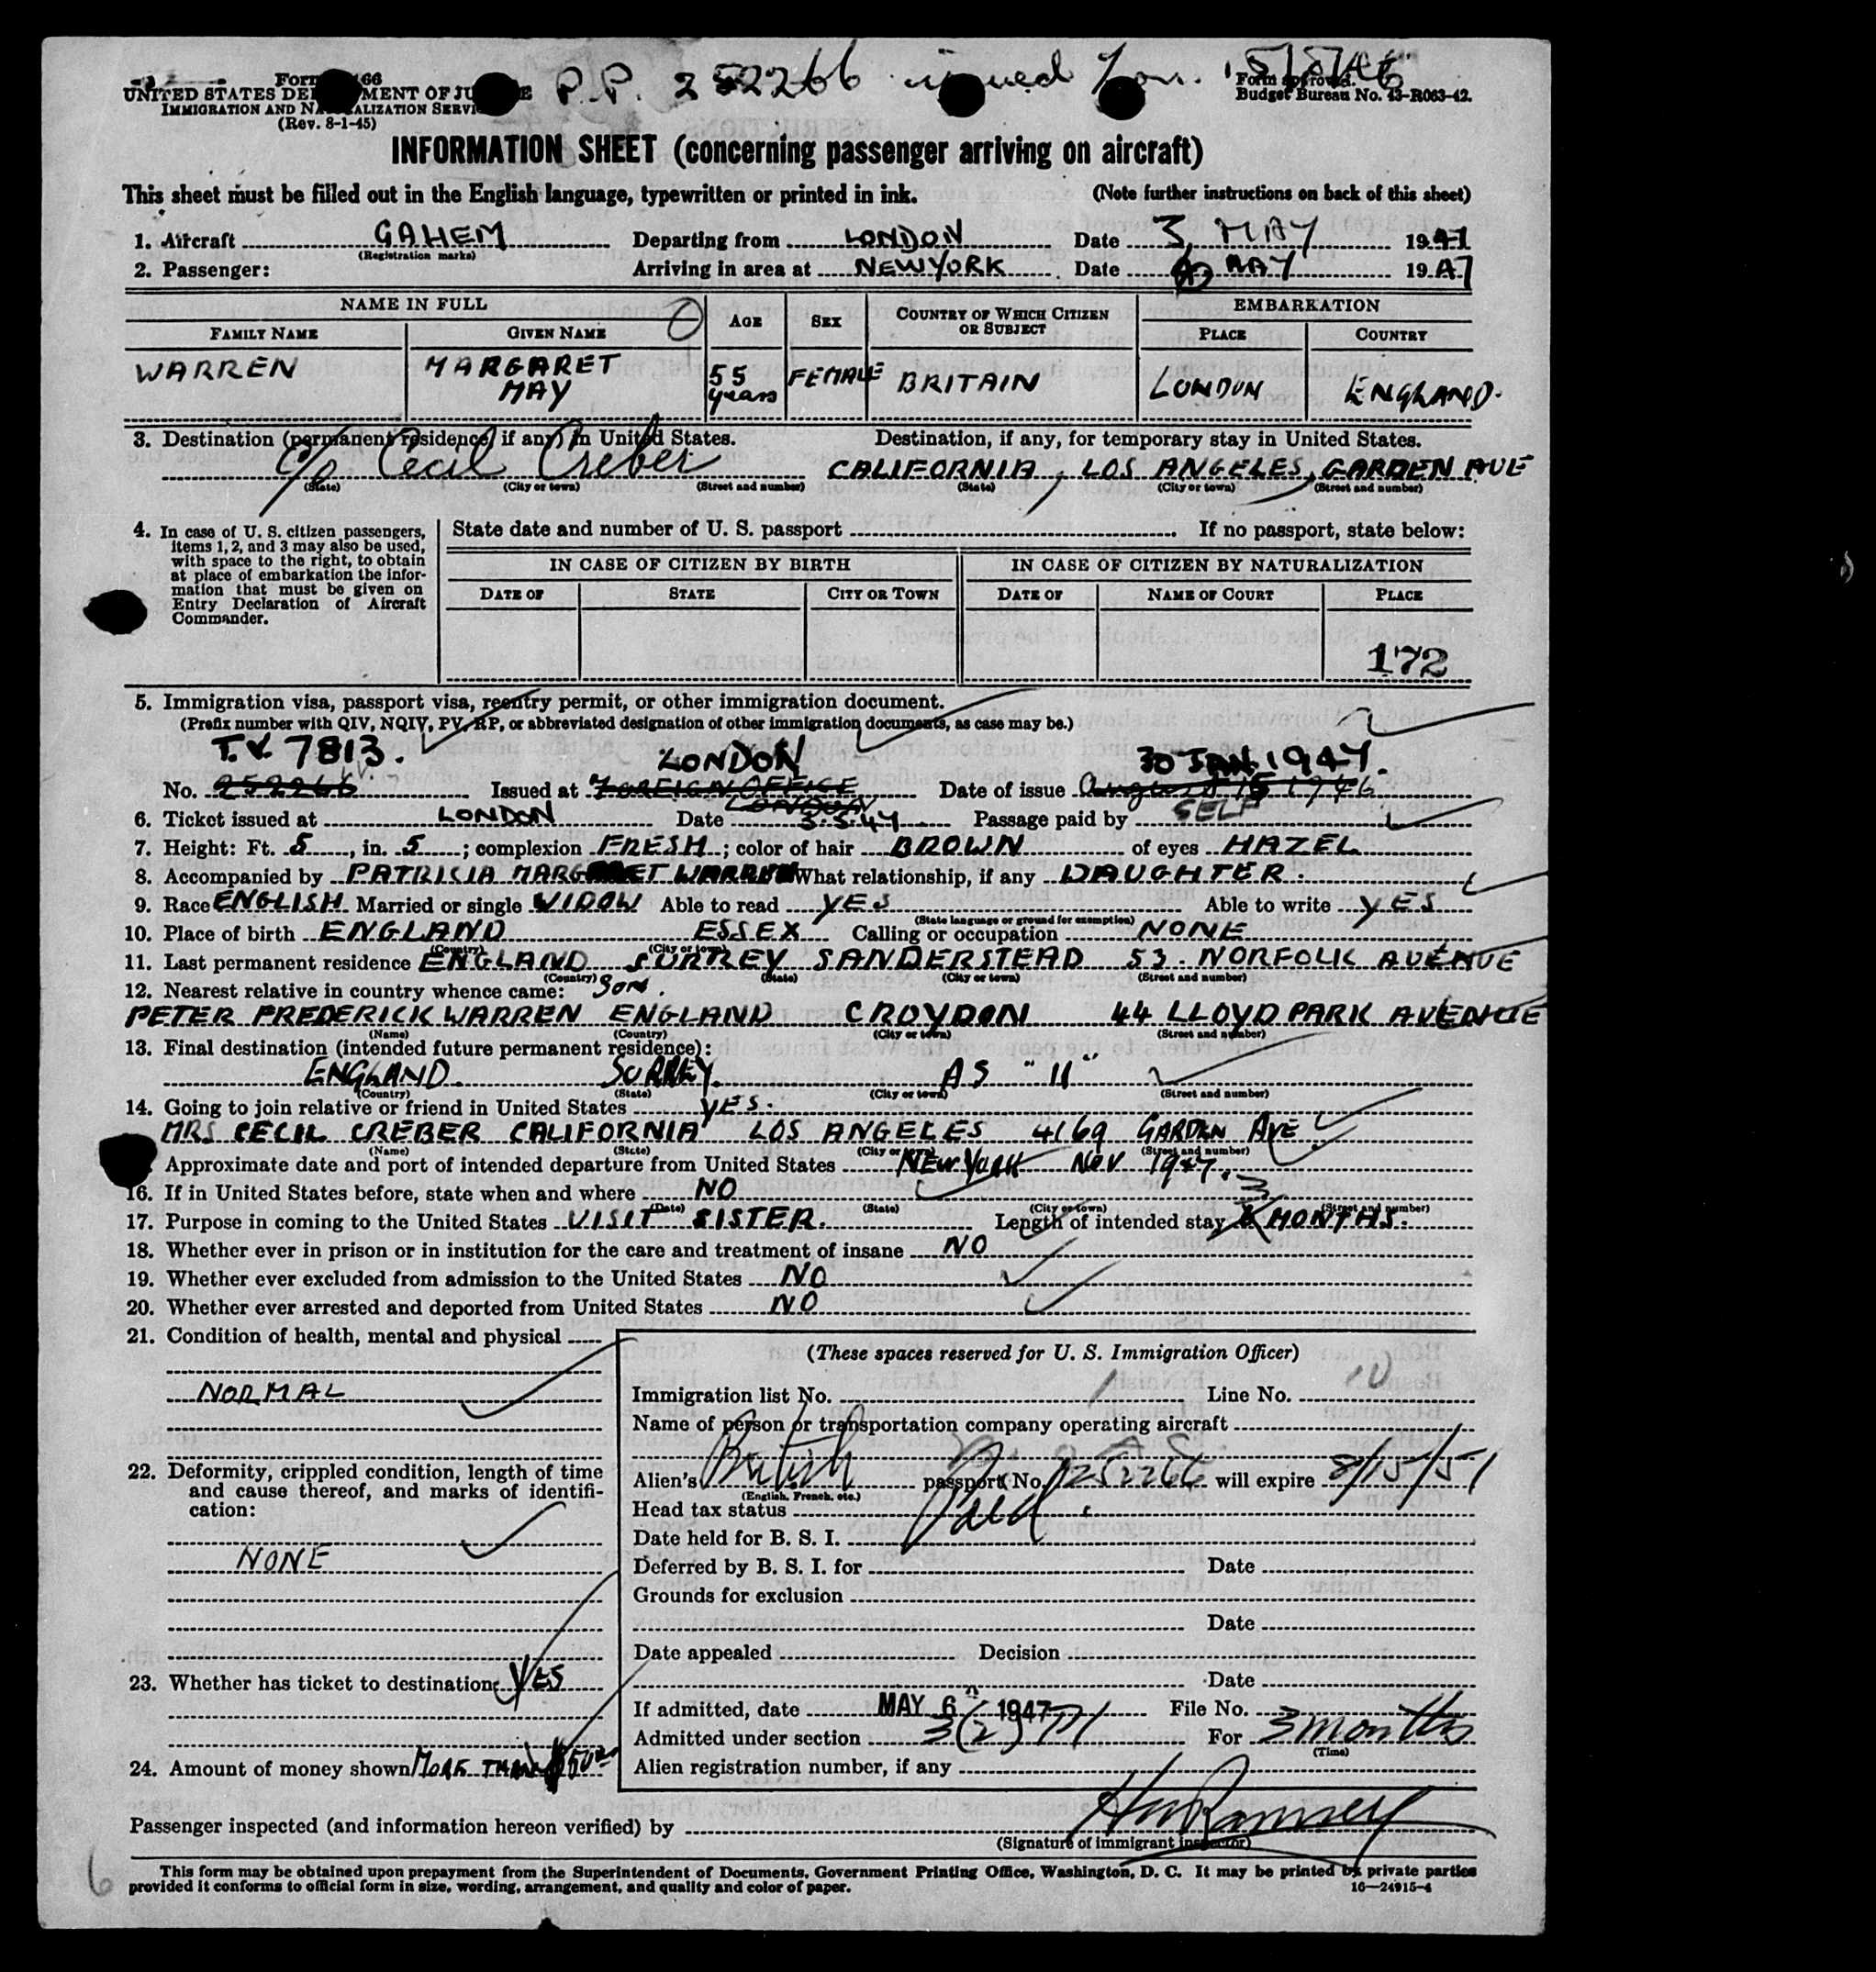 Form 66
UNITED STATES DEPARTMENT OF JUSTICE
IMMIGRATION AND NATURALIZATION SERVICE
(Rev. 8-1-45)
P.P. 252266 issued Lon.
Form approved.
Budget Bureau No. 43-R063-42.
INFORMATION SHEET (concerning passenger arriving on aircraft)
This sheet must be filled out in the English language, typewritten or printed in ink. (Note further instructions on back of this sheet)
1. Aircraft GAHEM Departing from LONDON Date 3, MAY 1947
(Registration marks)
2. Passenger: Arriving in area at NEWYORK Date MAY 1947
NAME IN FULL AGE SEX COUNTRY OF WHICH CITIZEN OR SUBJECT EMBARKATION
FAMILY NAME GIVEN NAME PLACE COUNTRY
WARREN MARGARET MAY 55 years FEMALE BRITAIN LONDON ENGLAND.
3. Destination (permanent residence, if any) in United States. Destination, if any, for temporary stay in United States.
c/o Cecil Creber CALIFORNIA, LOS ANGELES, GARDEN AVE
(State) (City or town) (Street and number) (State) (City or town) (Street and number)
4. In case of U. S. citizen passengers, items 1, 2, and 3 may also be used, with space to the right, to obtain at place of embarkation the information that must be given on Entry Declaration of Aircraft Commander.
State date and number of U. S. passport If no passport, state below:
IN CASE OF CITIZEN BY BIRTH IN CASE OF CITIZEN BY NATURALIZATION
DATE OF STATE CITY OR TOWN DATE OF NAME OF COURT PLACE
172
5. Immigration visa, passport visa, reentry permit, or other immigration document.
(Prefix number with QIV, NQIV, PV, RP, or abbreviated designation of other immigration documents, as case may be.)
T.V. 7813. LONDON 30 JAN 1947.
No. 252266 Issued at FOREIGN OFFICE LONDON Date of issue August 15 1946
6. Ticket issued at LONDON Date 3.5.47 Passage paid by SELF
7. Height: Ft. 5, in. 5; complexion FRESH; color of hair BROWN of eyes HAZEL
8. Accompanied by PATRICIA MARGARET WARREN What relationship, if any DAUGHTER.
9. Race ENGLISH Married or single WIDOW Able to read YES Able to write YES
(State language or ground for exemption)
10. Place of birth ENGLAND ESSEX Calling or occupation NONE
(Country) (City or town)
11. Last permanent residence ENGLAND SURREY SANDERSTEAD 53. NORFOLK AVENUE
(Country) (State) (City or town) (Street and number)
12. Nearest relative in country whence came: Son.
PETER FREDERICK WARREN ENGLAND CROYDON 44 LLOYD PARK AVENUE
(Name) (Country) (City or town) (Street and number)
13. Final destination (intended future permanent residence):
ENGLAND. SURREY. AS "11"
(Country) (State) (City or town) (Street and number)
14. Going to join relative or friend in United States YES.
MRS CECIL CREBER CALIFORNIA LOS ANGELES 4169 GARDEN AVE
(Name) (State) (City or town) (Street and number)
Approximate date and port of intended departure from United States NEW YORK NOV 1947.
16. If in United States before, state when and where NO
(Date) (State) (City or town) (Street and number)
17. Purpose in coming to the United States VISIT SISTER. Length of intended stay 3 MONTHS.
18. Whether ever in prison or in institution for the care and treatment of insane NO
19. Whether ever excluded from admission to the United States NO
20. Whether ever arrested and deported from United States NO
21. Condition of health, mental and physical
NORMAL
22. Deformity, crippled condition, length of time and cause thereof, and marks of identification:
NONE
23. Whether has ticket to destination YES
24. Amount of money shown MORE THAN $50
(These spaces reserved for U. S. Immigration Officer)
Immigration list No. 1 Line No. 10
Name of person or transportation company operating aircraft
Alien's British passport No. 252266 will expire 8/15/51
(English, French, etc.)
Head tax status Paid.
Date held for B. S. I.
Deferred by B. S. I. for Date
Grounds for exclusion
Date
Date appealed Decision
Date
If admitted, date MAY 6 1947 File No.
Admitted under section 3(2) For 3 months
(Time)
Alien registration number, if any
Passenger inspected (and information hereon verified) by
(Signature of immigrant inspector)
6
This form may be obtained upon prepayment from the Superintendent of Documents, Government Printing Office, Washington, D. C. It may be printed by private parties
provided it conforms to official form in size, wording, arrangement, and quality and color of paper. 16—24915-4